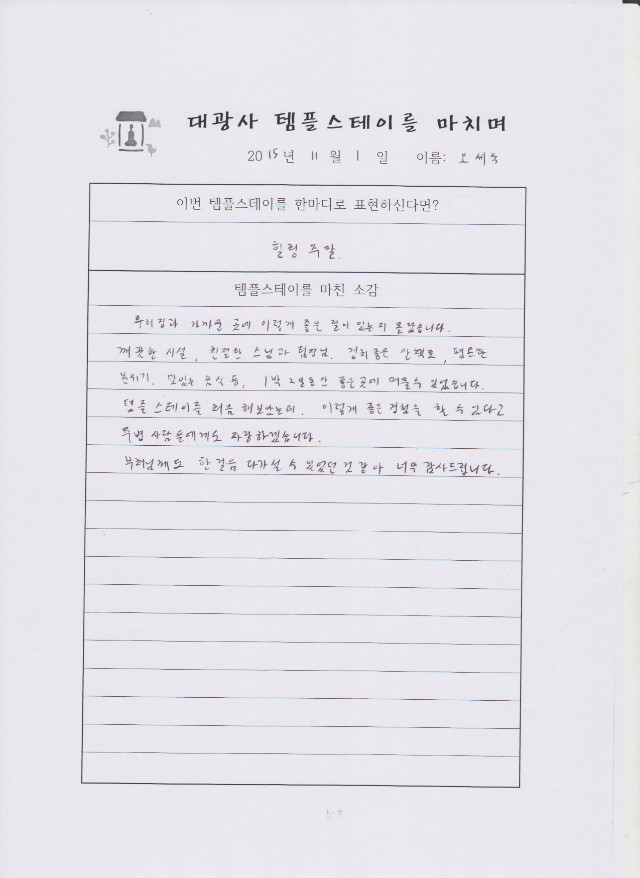 대광사 템플스테이를 마치며
2015년 11월 1일 이름: 오세욱
이번 템플스테이를 한마디로 표현하신다면?
힐링 주말.
템플스테이를 마친 소감
우리집과 가까운 곳에 이렇게 좋은 절이 있는지 몰랐습니다.
깨끗한 시설, 친절한 스님과 팀장님. 경치좋은 산책로, 편안한
분위기. 맛있는 음식 등, 1박 2일동안 좋은곳에 머물수 있었습니다.
템플스테이를 처음 해보았는데, 이렇게 좋은 경험을 할 수 있다고
주변 사람들에게도 자랑하겠습니다.
부처님께도 한걸음 다가설 수 있었던 것 같아 너무 감사드립니다.